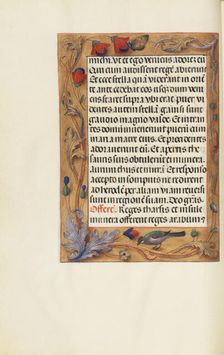 michi ut et ego veniens adorem eū
Qui cum audissent regē abierunt
Et ecce stella quā viderant in orien
te antecedebat eos usqꝫ dum veni
ens staret supra ubi erat puer vi
dentes autem stellam gavisi sunt
gaudio magno valde Et intran
tes domum invenerunt puerū cum
maria matre eius Et procidentes
adoraverunt eū Et apertis the
sauris suis obtulerunt ei munera
aurum thus et mirrā Et responso
accepto in sompnis ne redirent
ad herodē per aliam viam rever
si sunt in regionē suam Deo gratias
Offertē Reges tharsis et insule
munera offerent reges arabum et